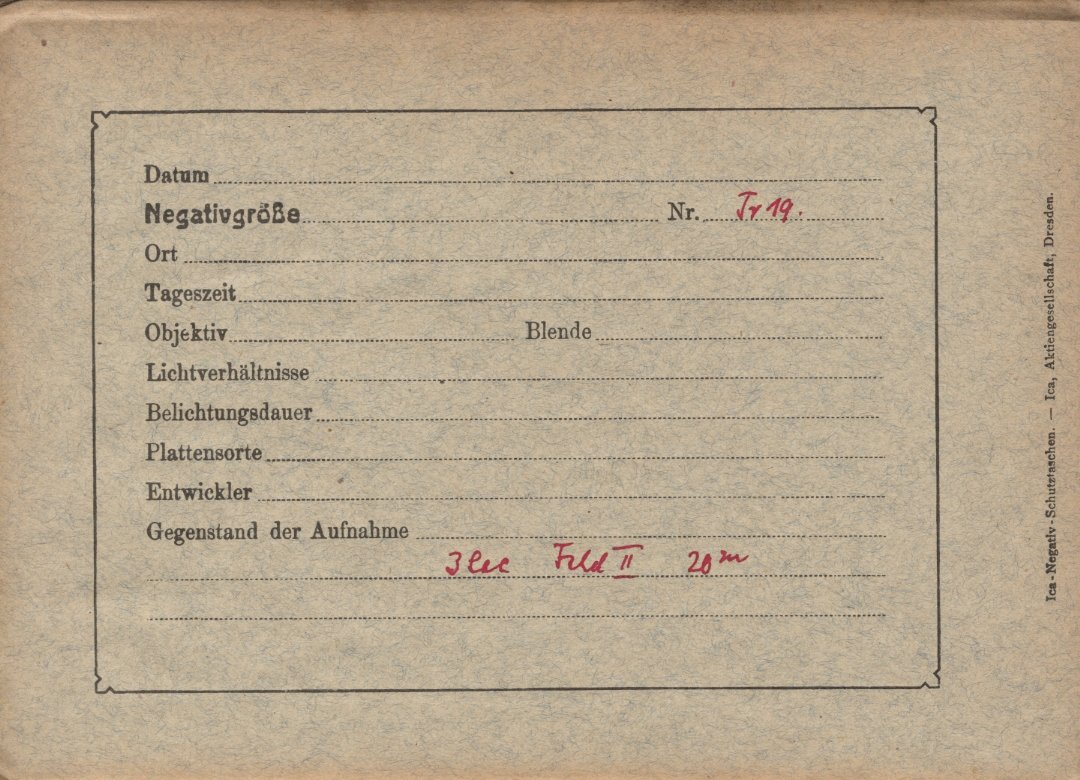 Datum
Negativgröße Nr. Tr 19.
Ort
Tageszeit
Objektiv Blende
Lichtverhältnisse
Belichtungsdauer
Plattensorte
Entwickler
Gegenstand der Aufnahme
Feld II 20 m
Ica-Negativ-Schutztaschen. — Ica, Aktiengesellschaft, Dresden.